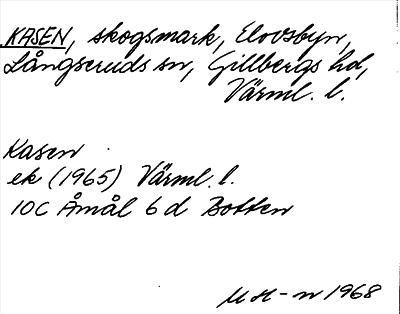 KASEN, skogsmark, Elovsbyn,
Långseruds sn, Gillbergs hd,
Värml. l.
Kasen
ek (1965) Värml. l.
10C Åmål 6 d Botten
MH-n 1968